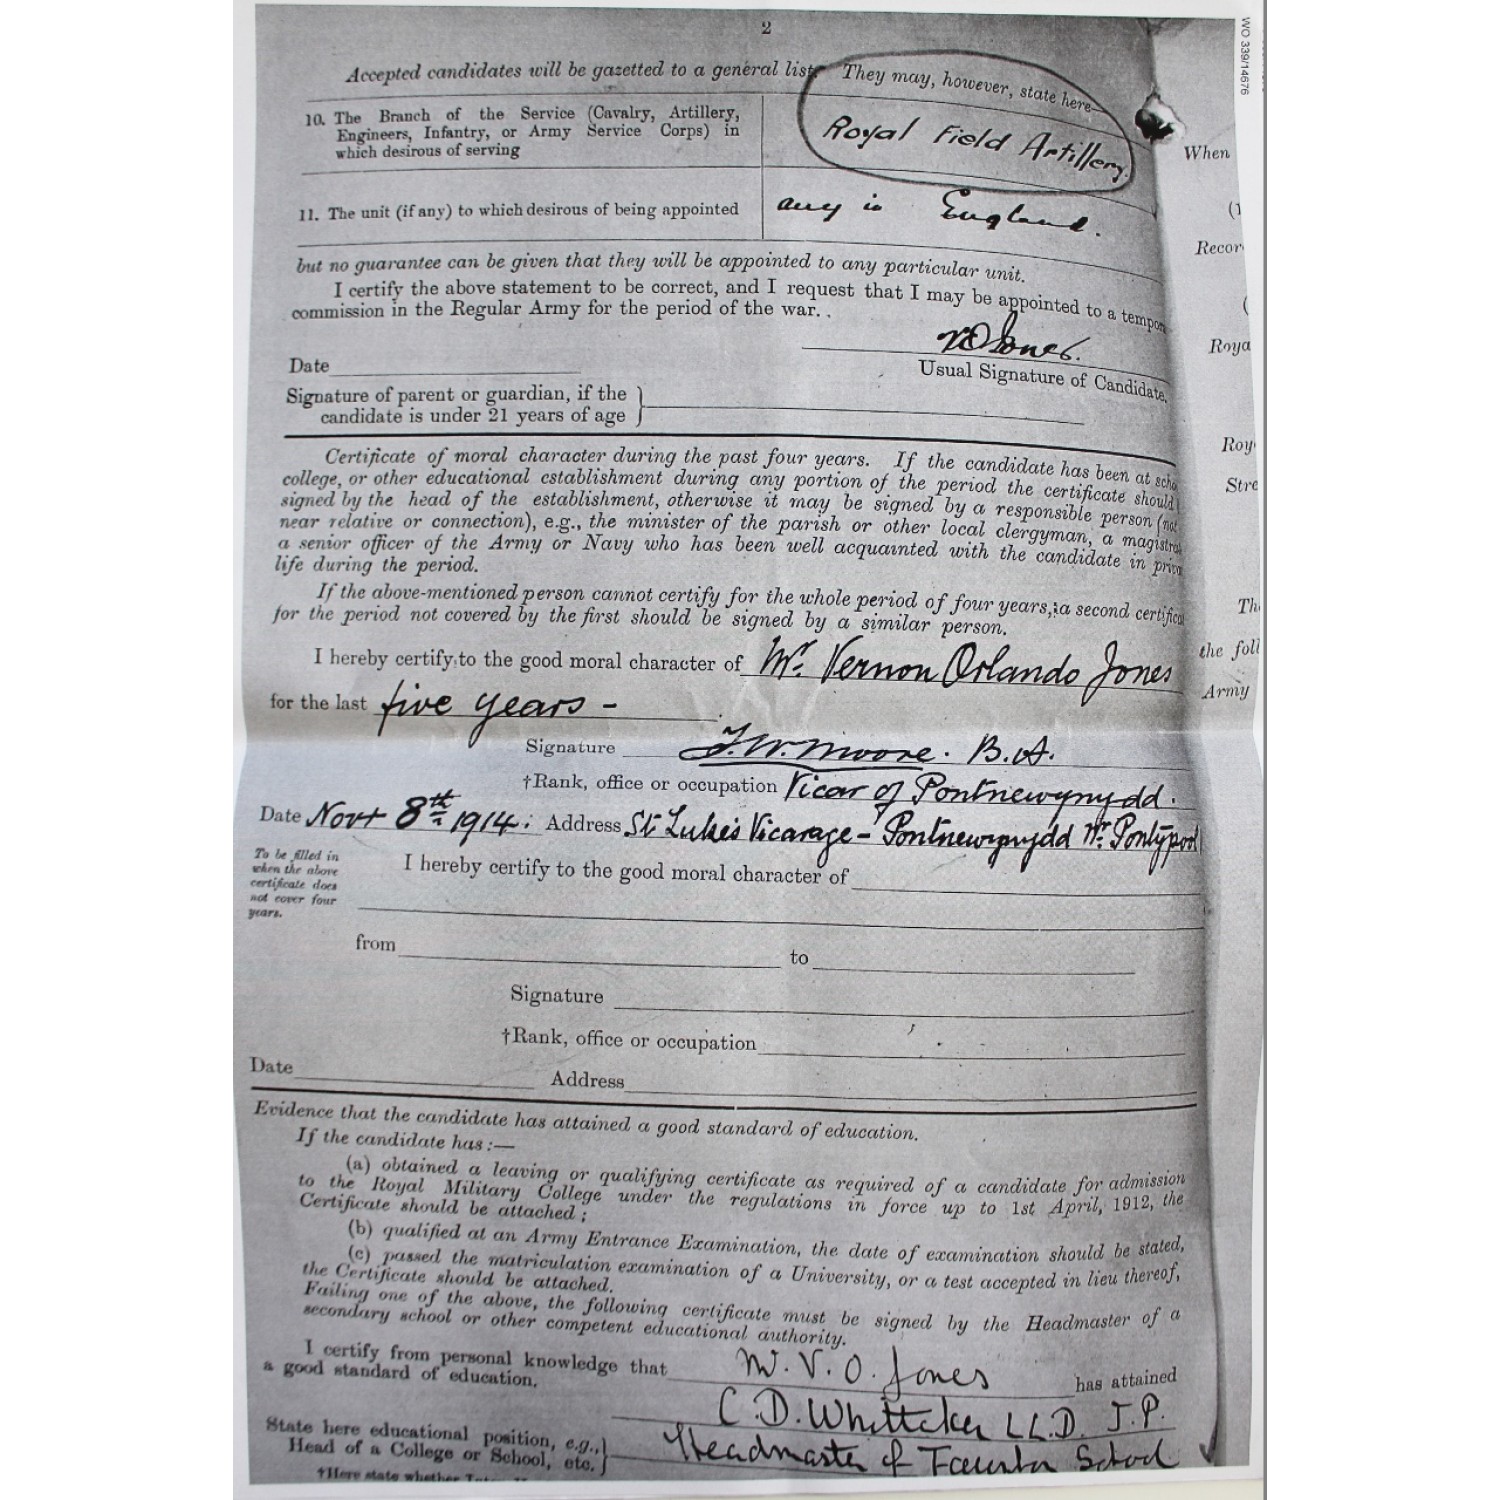 2
WO 339/14676
Accepted candidates will be gazetted to a general list. They may, however, state here—
10. The Branch of the Service (Cavalry, Artillery,
Engineers, Infantry, or Army Service Corps) in
which desirous of serving
Royal Field Artillery.
11. The unit (if any) to which desirous of being appointed
any in England.
but no guarantee can be given that they will be appointed to any particular unit.
I certify the above statement to be correct, and I request that I may be appointed to a tempor
commission in the Regular Army for the period of the war.
VOJones.
Date
Usual Signature of Candidate.
Signature of parent or guardian, if the
candidate is under 21 years of age
Certificate of moral character during the past four years. If the candidate has been at scho
college, or other educational establishment during any portion of the period the certificate should
signed by the head of the establishment, otherwise it may be signed by a responsible person (not
near relative or connection), e.g., the minister of the parish or other local clergyman, a magistra
a senior officer of the Army or Navy who has been well acquainted with the candidate in priva
life during the period.
If the above-mentioned person cannot certify for the whole period of four years, a second certifica
for the period not covered by the first should be signed by a similar person.
I hereby certify to the good moral character of Mr. Vernon Orlando Jones
for the last five years -
Signature J.W. Moore. B.A.
†Rank, office or occupation Vicar of Pontnewynydd.
Date Novr 8th 1914. Address St Luke's Vicarage - Pontnewynydd Nr. Pontypool
To be filled in
when the above
certificate does
not cover four
years.
I hereby certify to the good moral character of
from to
Signature
†Rank, office or occupation
Date Address
Evidence that the candidate has attained a good standard of education.
If the candidate has:—
(a) obtained a leaving or qualifying certificate as required of a candidate for admission
to the Royal Military College under the regulations in force up to 1st April, 1912, the
Certificate should be attached;
(b) qualified at an Army Entrance Examination, the date of examination should be stated,
(c) passed the matriculation examination of a University, or a test accepted in lieu thereof,
the Certificate should be attached.
Failing one of the above, the following certificate must be signed by the Headmaster of a
secondary school or other competent educational authority.
I certify from personal knowledge that M. V. O. Jones has attained
a good standard of education.
C. D. Whitteker LL.D. J.P.
State here educational position, e.g.,
Head of a College or School, etc.
Headmaster of School
†Here state whether
When
(1
Recor
(
Roya
Roy
Stre
Th
the foll
Army